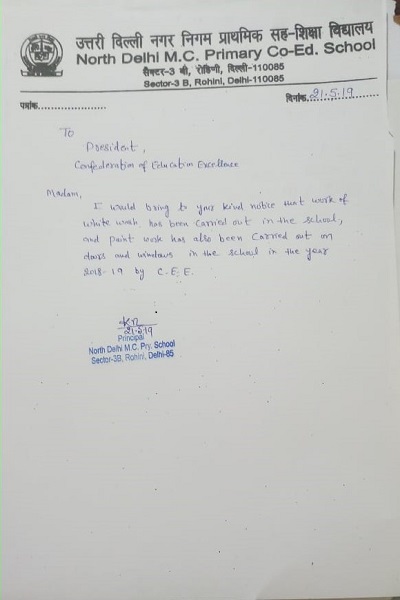 उत्तरी दिल्ली नगर निगम प्राथमिक सह-शिक्षा विद्यालय
North Delhi M.C. Primary Co-Ed. School
सैक्टर-3 बी, रोहिणी, दिल्ली-110085
Sector-3 B, Rohini, Delhi-110085
दिनांक 21.5.19
To
President,
Confederation of Education Excellence
Madam,
I would bring to your kind notice that work of
white wash has been carried out in the school,
and paint work has also been carried out on
doors and windows in the school in the year
2018-19 by C.E.E.
21.5.19
Principal
North Delhi M.C. Pry. School
Sector-3B, Rohini, Delhi-85